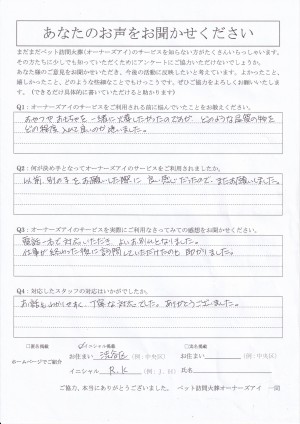 あなたのお声をお聞かせください
まだまだペット訪問火葬(オーナーズアイ)のサービスを知らない方がたくさんいらっしゃいます。
その方たちに少しでも知っていただくためにアンケートにご協力いただけないでしょうか。
あなた様のご意見をお聞かせいただき、今後の活動に反映したいと考えています。よかったこと、
嬉しかったこと、どのような些細なことでもけっこうです。ぜひご協力をよろしくお願いいたしま
す。(できるだけ具体的に書いていただけると助かります)
Q1:オーナーズアイのサービスをご利用される前に悩んでいたことをお教えください。
おやつやおもちゃを一緒に火葬したかったのですが、どのような品質の物を
どの程度入れて良いのか迷いました。
Q2:何が決め手となってオーナーズアイのサービスをご利用されましたか。
以前、別の子をお願いした際に良い感じだったので、またお願いしました。
Q3:オーナーズアイのサービスを実際にご利用なさってみての感想をお聞かせください。
電話一本で対応いただき、よいお別れとなりました。
仕事が終わった後に訪問していただけたのも助かりました。
Q4:対応したスタッフの対応はいかがでしたか。
お話もわかりやすく、丁寧な対応でした。ありがとうございました。
□匿名掲載 ☑イニシャル掲載 □実名掲載
ホームページでご紹介 お住まい 渋谷区 (例:中央区) お住まい (例:中央区)
イニシャル R.K (例:J.H) 氏名
ご協力、本当にありがとうございました。 ペット訪問火葬オーナーズアイ 一同